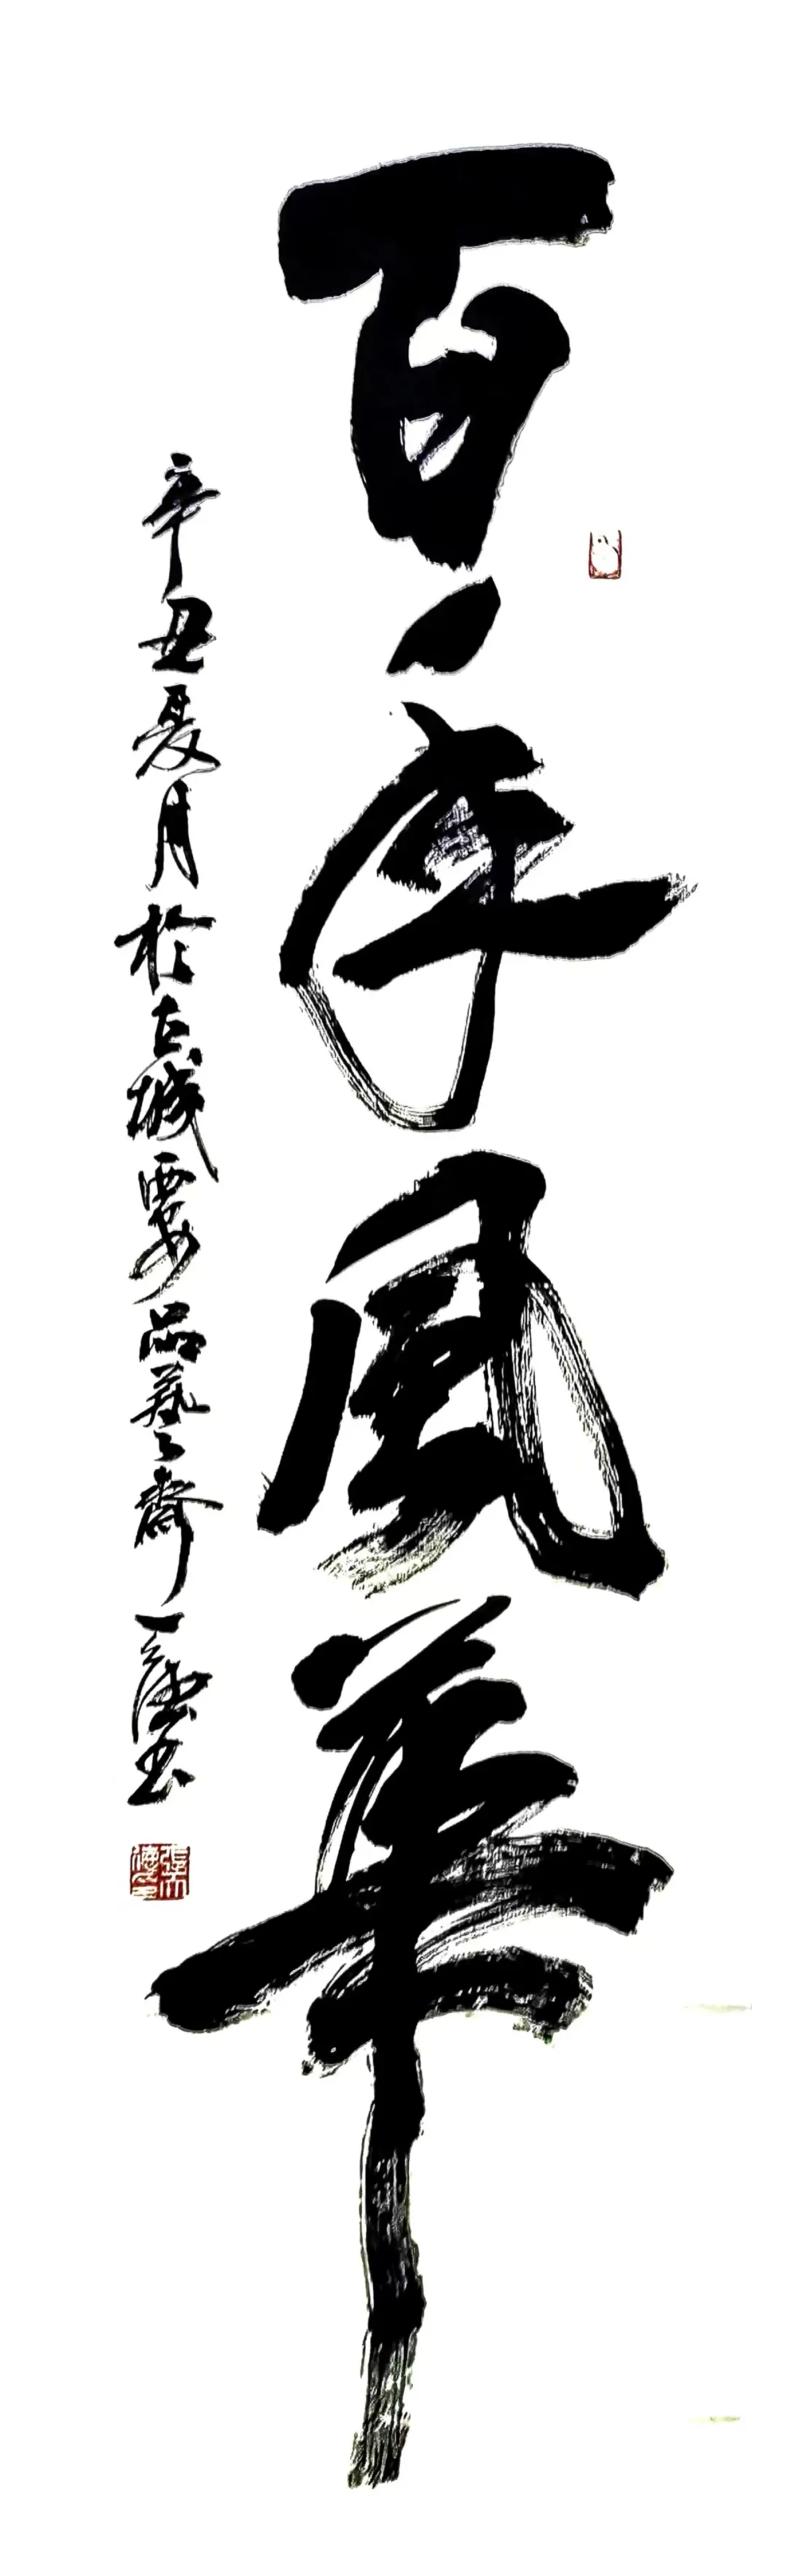 百年風華
辛丑夏月於古城要品藝齋